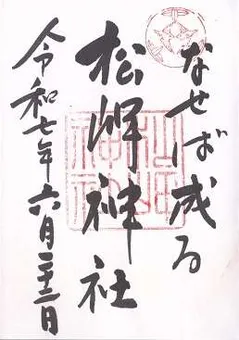 なせば成る
松岬神社
令和七年六月二十二日